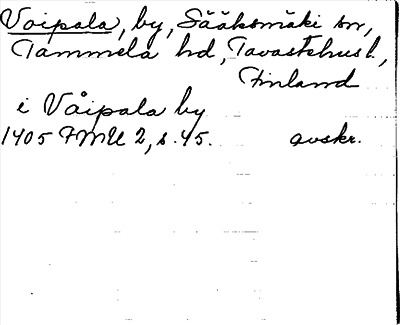 Voipala, by, Sääksmäki sn,
Tammela hd, Tavastehus l.,
Finland
i Våipala by
1405 FMU 2, s. 45. avskr.